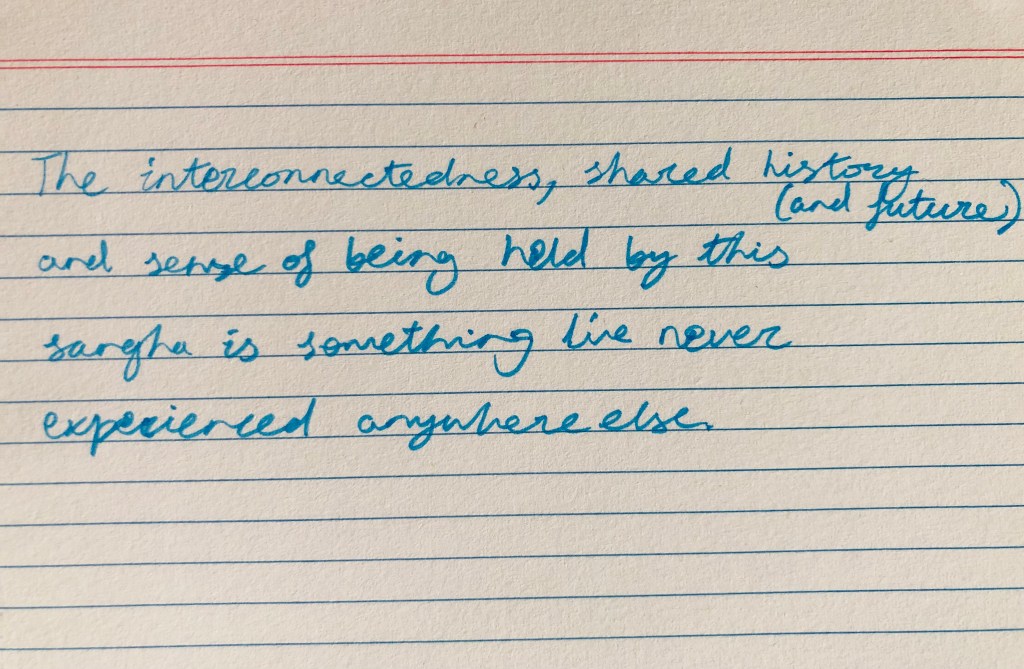 The interconnectedness, shared history
(and future,)
and sense of being held by this
sangha is something I've never
experienced anywhere else.